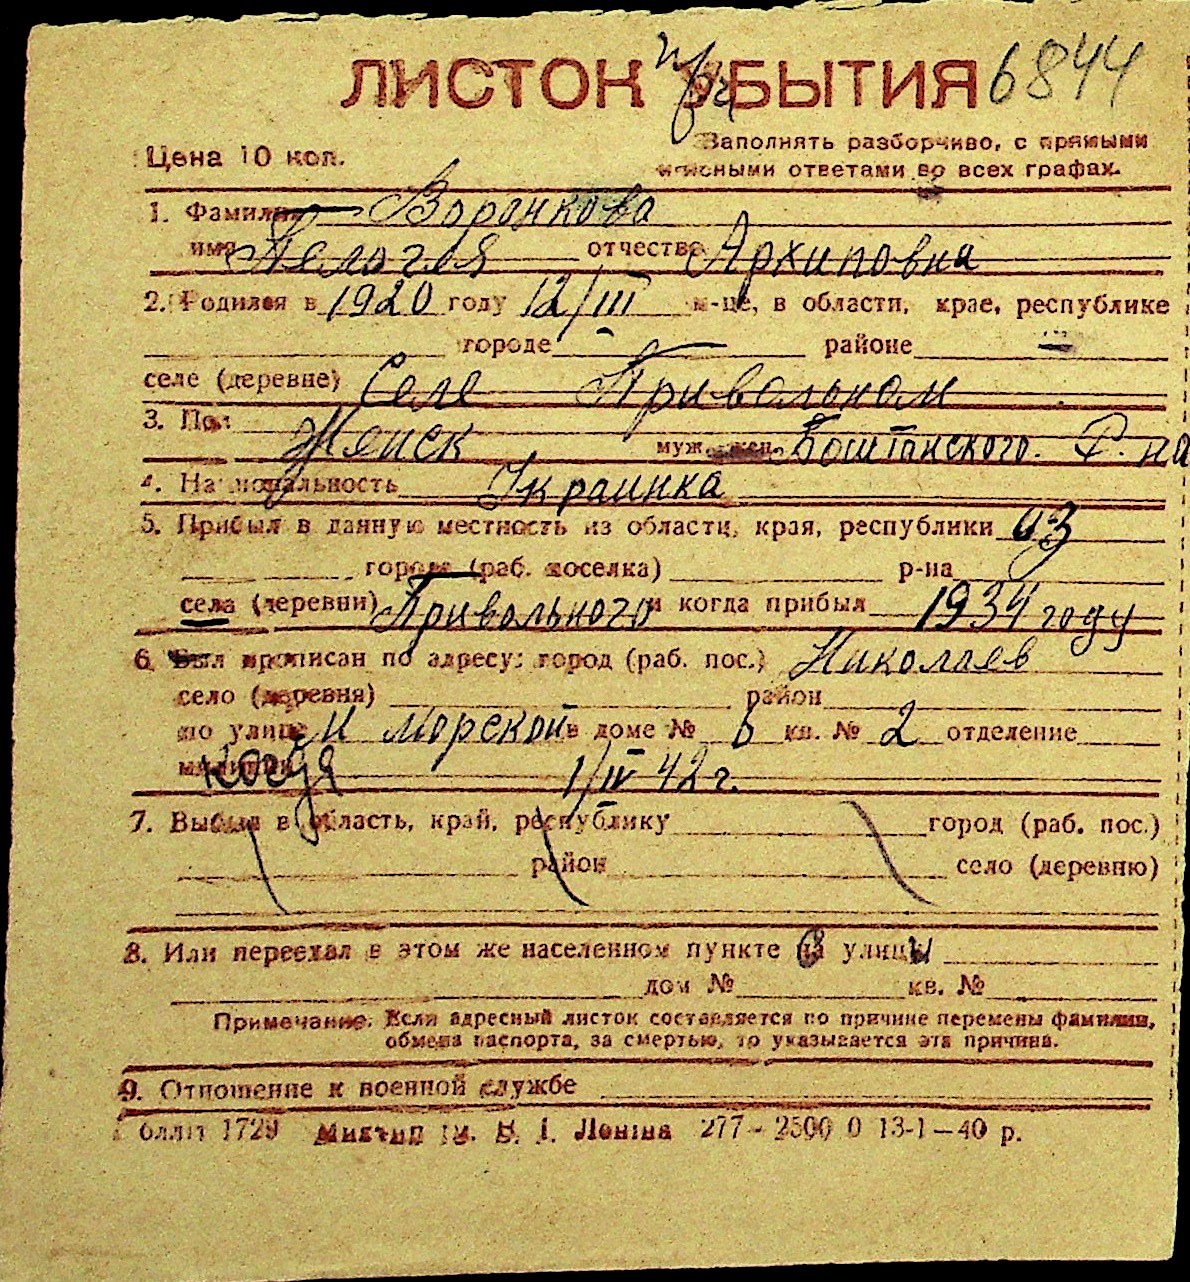 ЛИСТОК УБЫТИЯ 6844
Цена 10 коп.
Заполнять разборчиво, с прямыми
и ясными ответами во всех графах.
1. Фамилия Воронкова
имя Пелогея отчество Архиповна
2. Родился в 1920 году 12/III м-це, в области, крае, республике
городе районе
селе (деревне) Селе Привольном
3. Пол Женск муж. жен. Баштанского Р-на
4. Национальность Украинка
5. Прибыл в данную местность из области, края, республики из
города (раб. поселка) р-на
села (деревни) Привольного и когда прибыл 1934 году
6. Был прописан по адресу: город (раб. пос.) Николаев
село (деревня) район
по улице Н морской в доме № 6 кв. № 2 отделение
милиции когда 1/IV 42 г.
7. Выбыл в область, край, республику город (раб. пос.)
район село (деревню)
8. Или переехал в этом же населенном пункте на улицы
дом № кв. №
Примечание. Если адресный листок составляется по причине перемены фамилии,
обмена паспорта, за смертью, то указывается эта причина.
9. Отношение к военной службе
1729 Миктип ім. В. І. Леніна 277-2500 0 13-1-40 р.